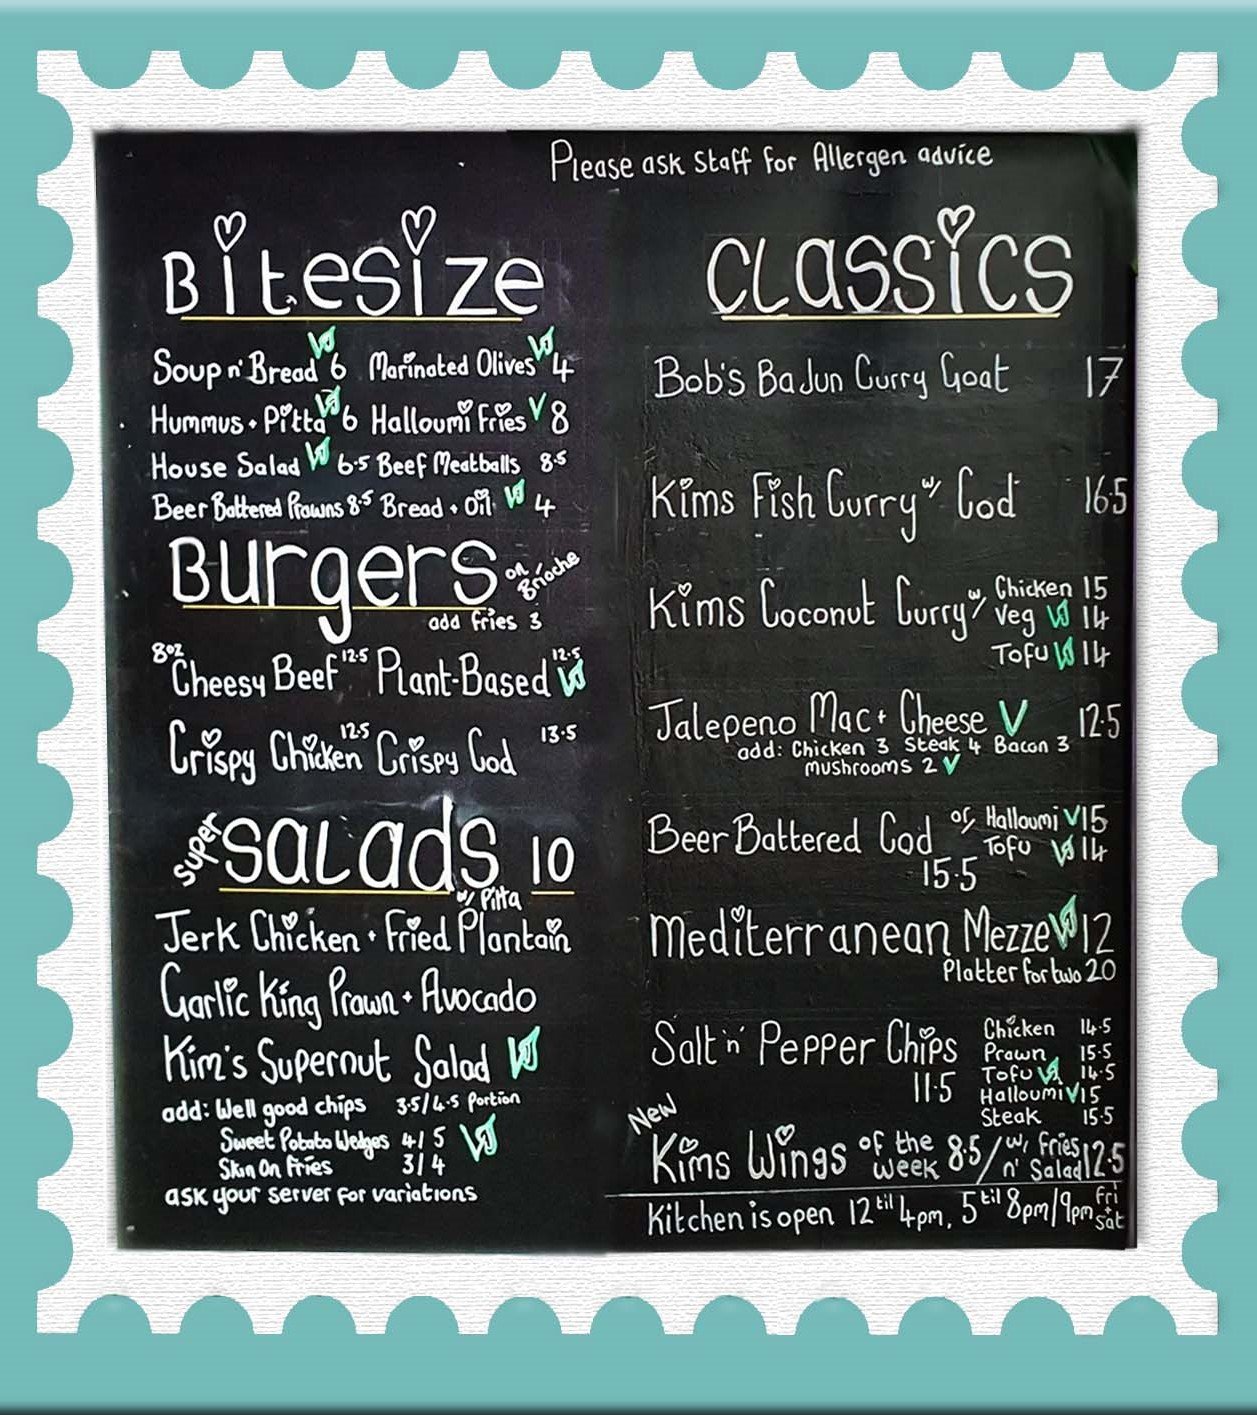 Please ask staff for Allergen advice
Bitesize
Soup n' Bread VG 6 Marinated Olives VG 4
Hummus + Pitta VG 6 Halloumi Fries V 8
House Salad VG 6.5 Beef Meatballs 8.5
Beer Battered Prawns 8.5 Bread + Oil VG 4
Burgers on Brioche
add fries 3
8oz Cheesy Beef 12.5 Plant-Based 12.5 VG
Crispy Chicken 12.5 Crispy Cod 13.5
Super Salads 10
w/ Pitta
Jerk Chicken + Fried Plantain
Garlic King Prawn + Avocado
Kim's Supernut Salad VG
add: Well good chips 3.5/4.5 Portion
Sweet Potato Wedges 4/5 VG
Skin On Fries 3/4
ask your server for variations
Classics
Bob's BaJun Curry Goat 17
Kims Fish Curry w/ Cod 16.5
Kims Coconut Curry w/ Chicken 15
Veg VG 14
Tofu VG 14
Jalepeno Mac + Cheese V 12.5
add: Chicken 3 Steak 4 Bacon 3
mushrooms 2 V
Beer Battered Cod or/ Halloumi V 15
15.5 Tofu VG 14
Mediterranean Mezze VG 12
Platter for two 20
Salt 'n' Pepper Chips Chicken 14.5
11.5 Prawn 15.5
Tofu VG 14.5
Halloumi V 15
Steak 15.5
New
Kims Wings of the week 8.5/ w/ Fries n' Salad 12.5
Kitchen is open 12 til 4pm, 5 til 8pm/9pm Fri + Sat